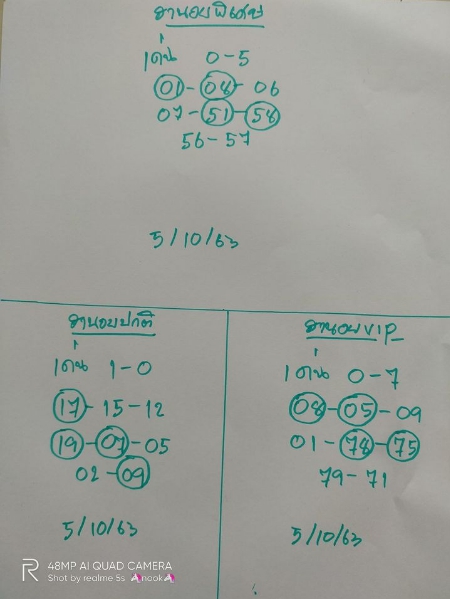 ฮานอยพิเศษ
เด่น 0-5
01-08-06
07-51-58
56-57
5/10/63
ฮานอยปกติ
เด่น 1-0
17-15-12
19-07-05
02-09
5/10/63
ฮานอยVIP
เด่น 0-7
08-05-09
01-78-75
79-71
5/10/63
48MP AI QUAD CAMERA
Shot by realme 5s nooka